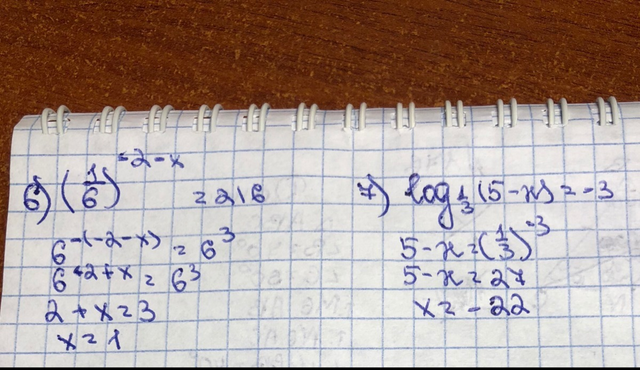 6) (1/6)^(-2-x) = 216
6^(-(-2-x)) = 6^3
6^(+2+x) = 6^3
2 + x = 3
x = 1
7) log_(1/3) (5-x) = -3
5-x = (1/3)^(-3)
5-x = 27
x = -22